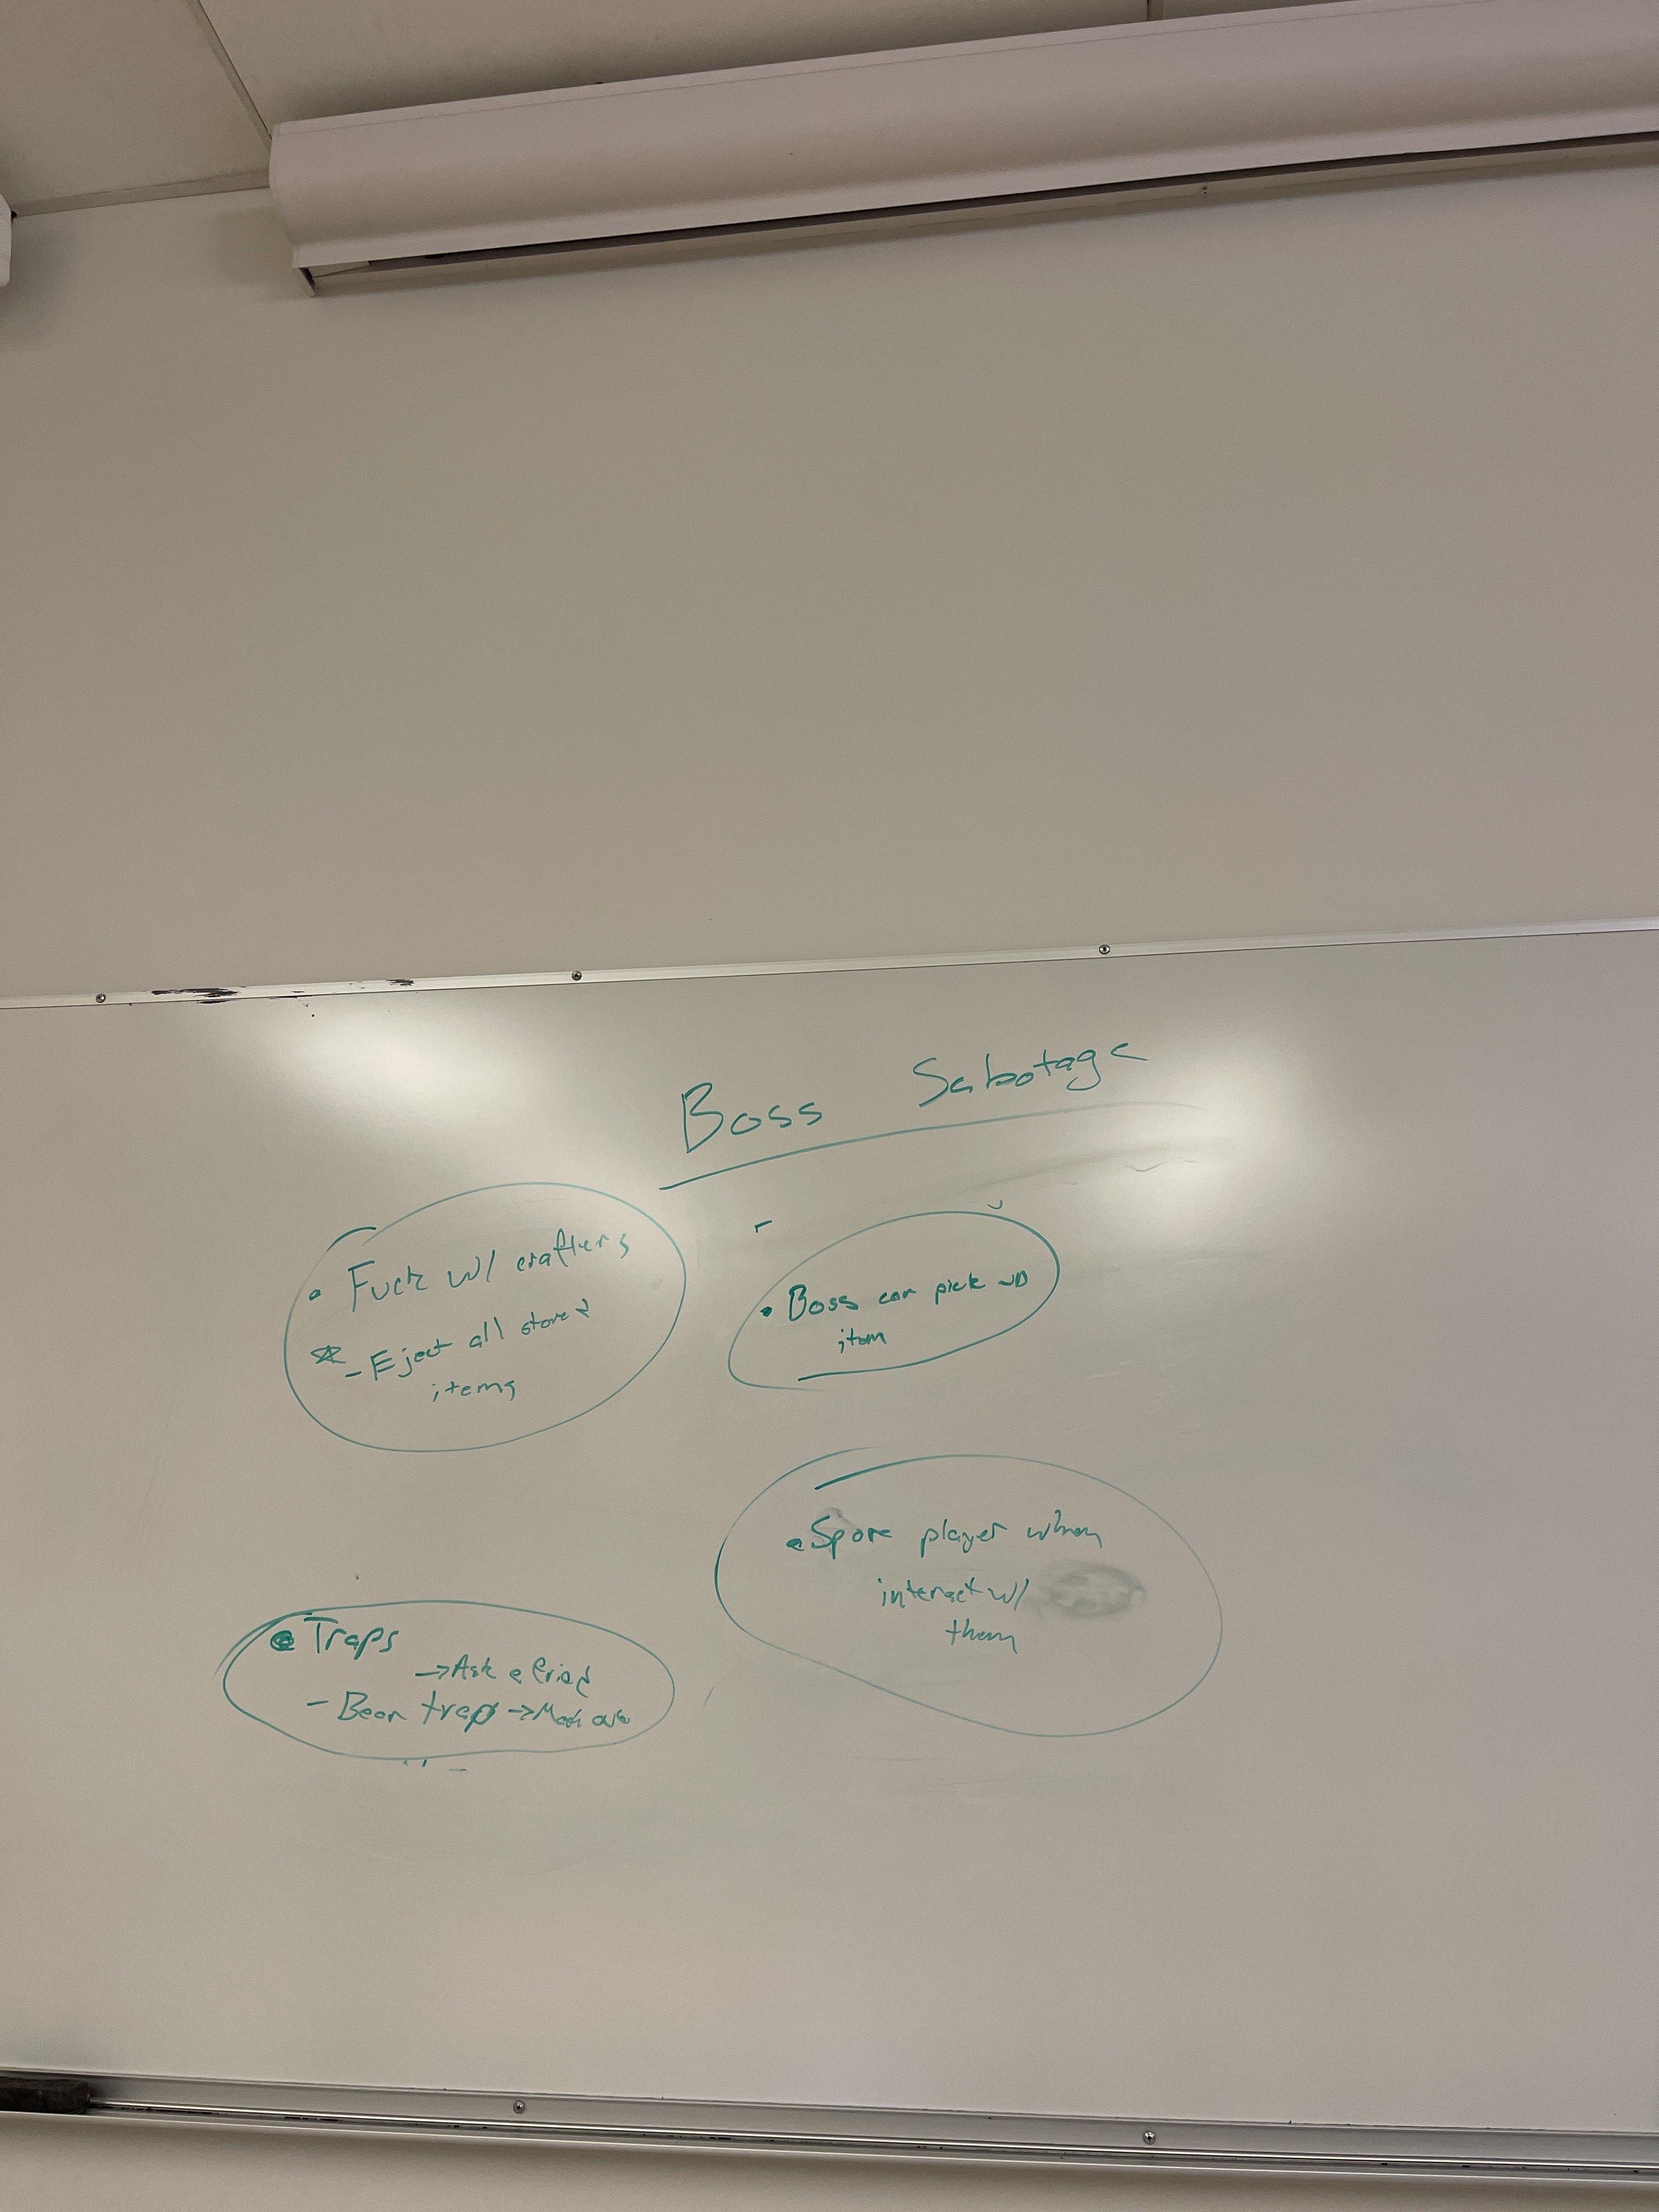 Boss Sabotage
• Fuck w/ crafters
- Eject all stored
items
• Boss can pick up
item
• Spore player when
interact w/
them
• Traps
→ Ask
- Bear trap →